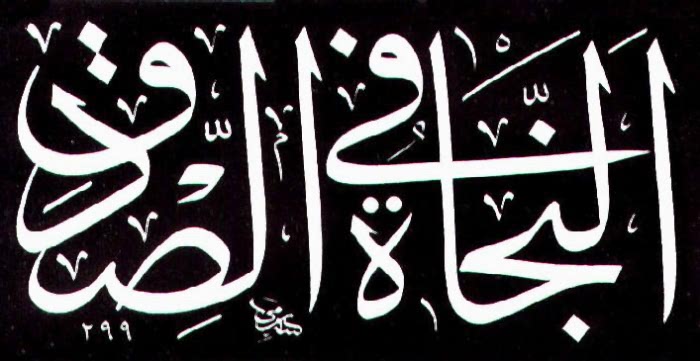 النَّجَاةُ فِي الصِّدْقِ
سامي
٢٩٩